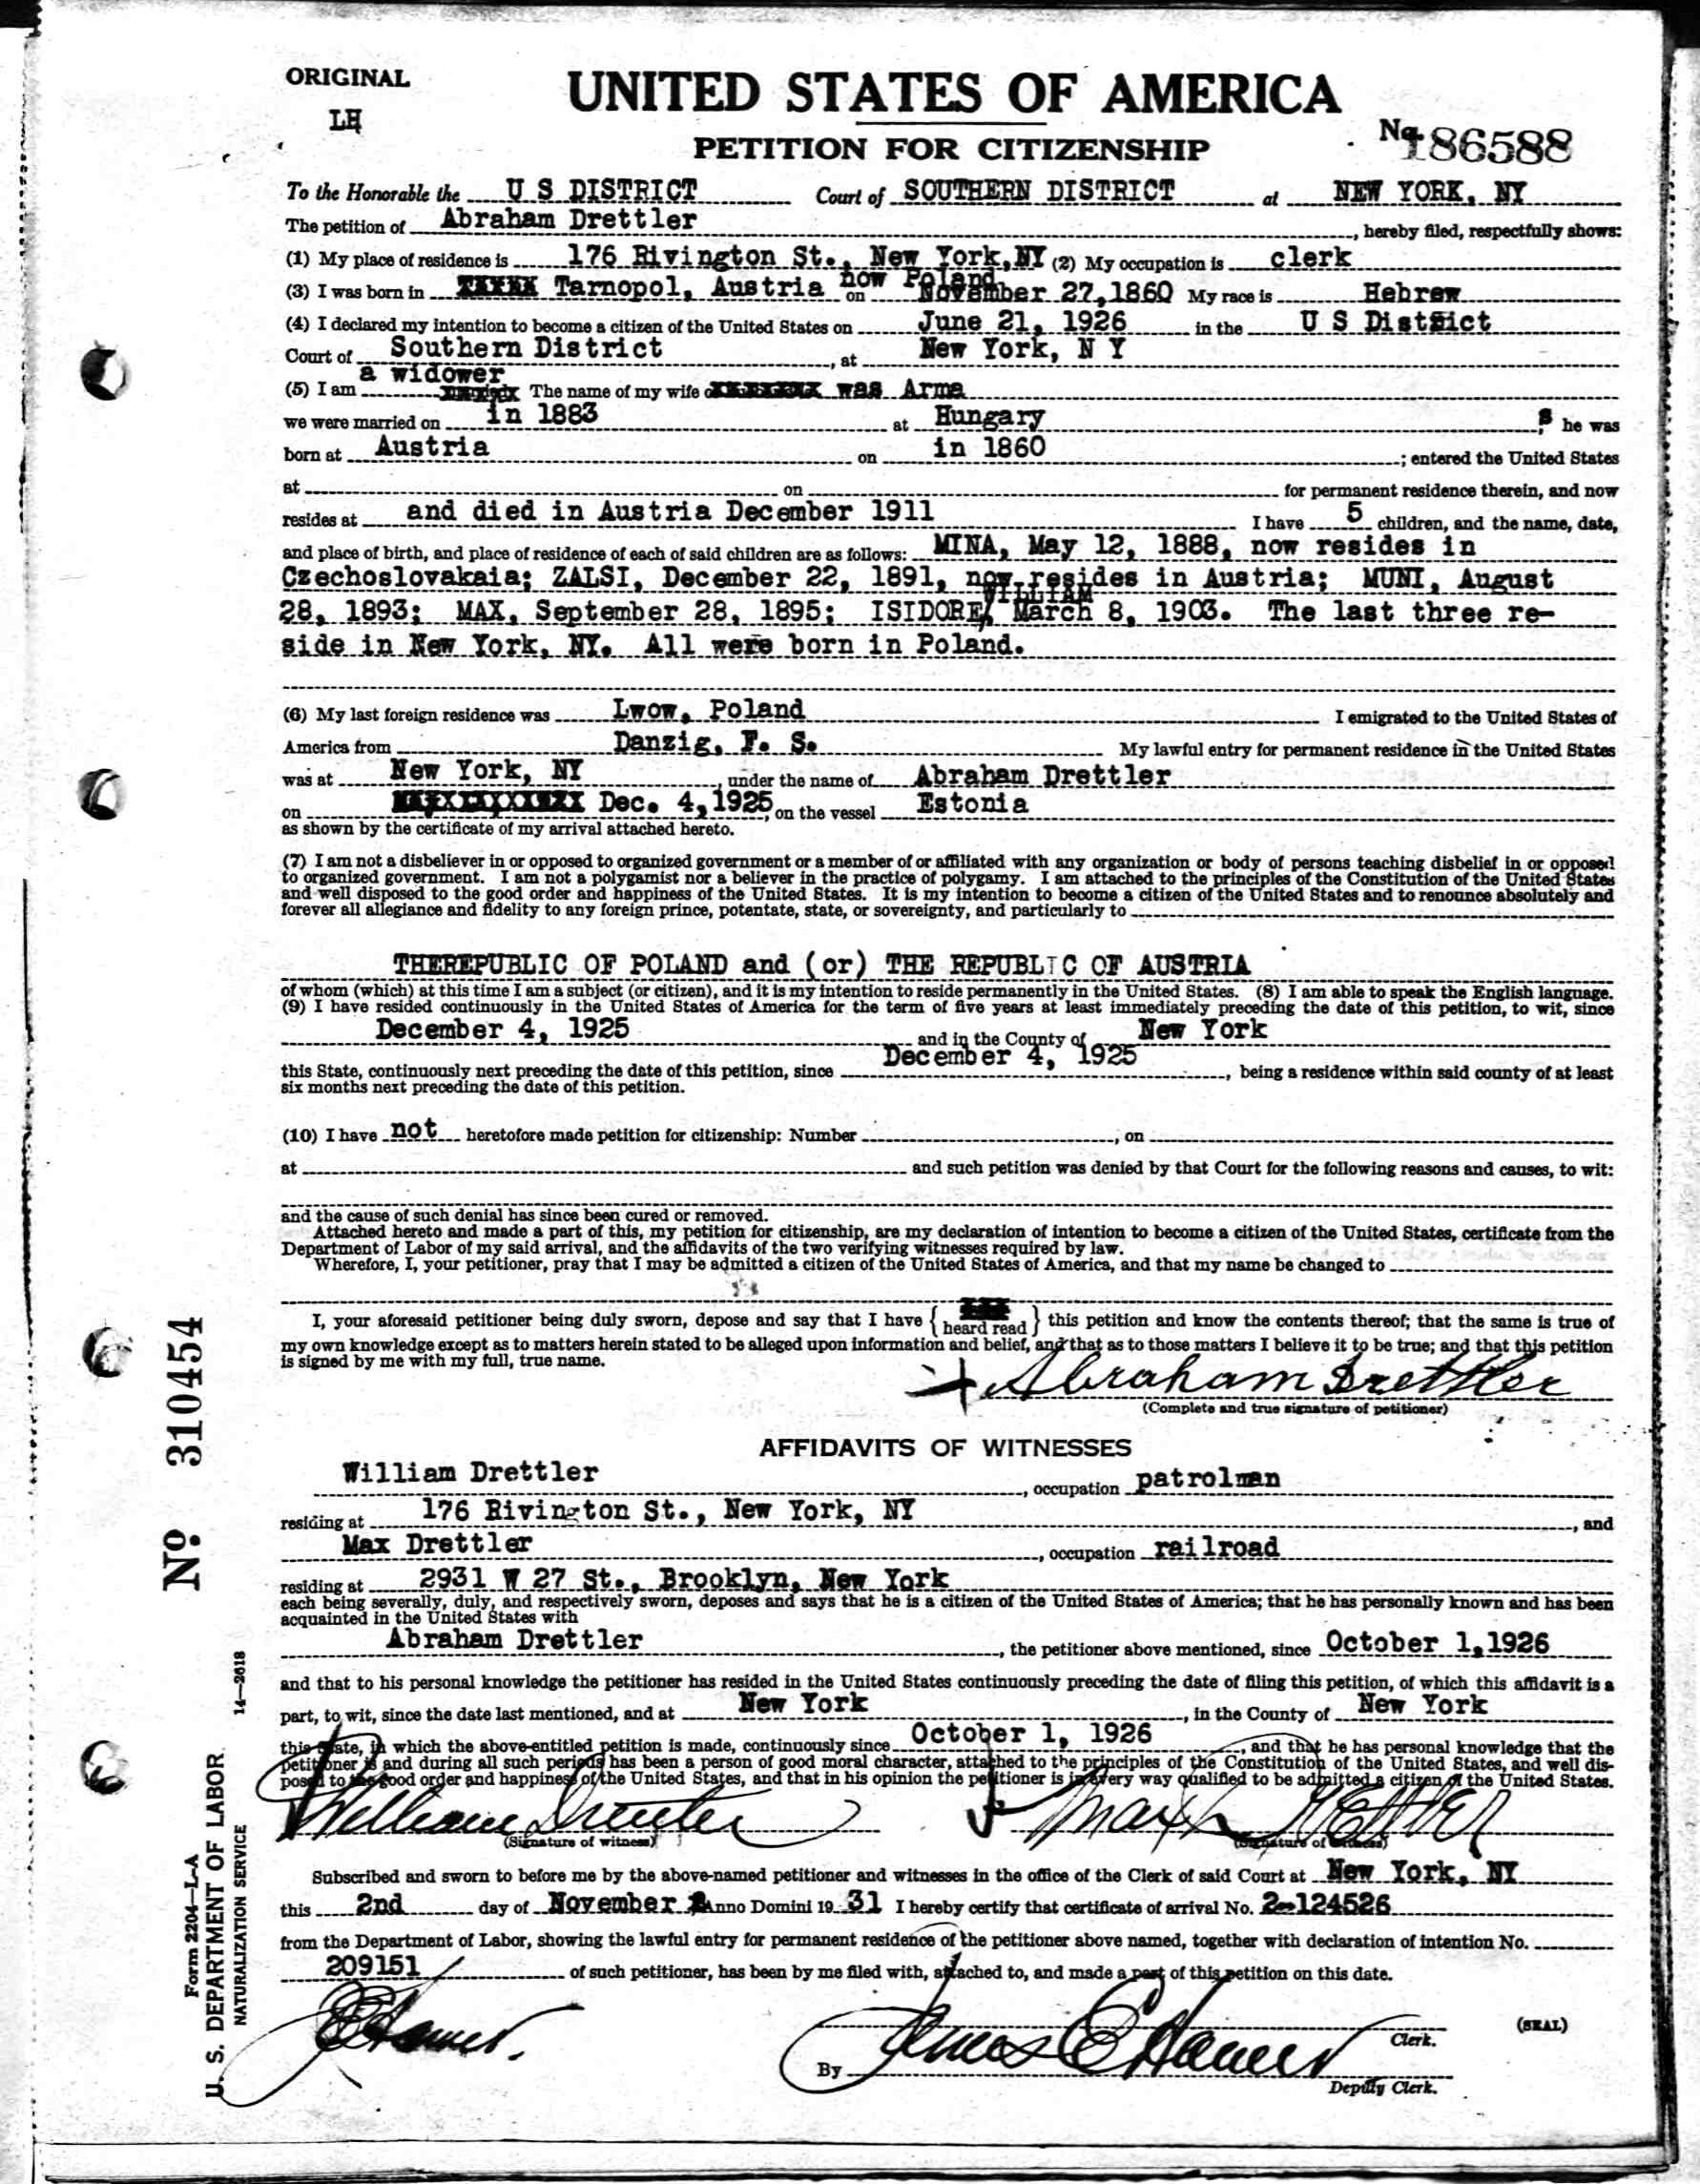 ORIGINAL
LH
UNITED STATES OF AMERICA
PETITION FOR CITIZENSHIP
No. 186588
To the Honorable the U S DISTRICT Court of SOUTHERN DISTRICT at NEW YORK, NY
The petition of Abraham Drettler, hereby filed, respectfully shows:
(1) My place of residence is 176 Rivington St., New York, NY (2) My occupation is clerk
(3) I was born in Tarnopol, Austria now Poland on November 27, 1860 My race is Hebrew
(4) I declared my intention to become a citizen of the United States on June 21, 1926 in the U S District
Court of Southern District, at New York, N Y
(5) I am a widower The name of my wife was Arma
we were married on in 1883 at Hungary s he was
born at Austria on in 1860; entered the United States
at on for permanent residence therein, and now
resides at and died in Austria December 1911 I have 5 children, and the name, date,
and place of birth, and place of residence of each of said children are as follows: MINA, May 12, 1888, now resides in
Czechoslovakaia; ZALSI, December 22, 1891, now resides in Austria; MUNI, August
28, 1893; MAX, September 28, 1895; ISIDORE/ WILLIAM March 8, 1903. The last three re-
side in New York, NY. All were born in Poland.
(6) My last foreign residence was Lwow, Poland I emigrated to the United States of
America from Danzig, F. S. My lawful entry for permanent residence in the United States
was at New York, NY, under the name of Abraham Drettler
on Dec. 4, 1925, on the vessel Estonia
as shown by the certificate of my arrival attached hereto.
(7) I am not a disbeliever in or opposed to organized government or a member of or affiliated with any organization or body of persons teaching disbelief in or opposed
to organized government. I am not a polygamist nor a believer in the practice of polygamy. I am attached to the principles of the Constitution of the United States
and well disposed to the good order and happiness of the United States. It is my intention to become a citizen of the United States and to renounce absolutely and
forever all allegiance and fidelity to any foreign prince, potentate, state, or sovereignty, and particularly to
THEREPUBLIC OF POLAND and (or) THE REPUBLIC OF AUSTRIA
of whom (which) at this time I am a subject (or citizen), and it is my intention to reside permanently in the United States. (8) I am able to speak the English language.
(9) I have resided continuously in the United States of America for the term of five years at least immediately preceding the date of this petition, to wit, since
December 4, 1925 and in the County of New York
this State, continuously next preceding the date of this petition, since December 4, 1925, being a residence within said county of at least
six months next preceding the date of this petition.
(10) I have not heretofore made petition for citizenship: Number , on
at and such petition was denied by that Court for the following reasons and causes, to wit:
and the cause of such denial has since been cured or removed.
Attached hereto and made a part of this, my petition for citizenship, are my declaration of intention to become a citizen of the United States, certificate from the
Department of Labor of my said arrival, and the affidavits of the two verifying witnesses required by law.
Wherefore, I, your petitioner, pray that I may be admitted a citizen of the United States of America, and that my name be changed to
I, your aforesaid petitioner being duly sworn, depose and say that I have { heard read } this petition and know the contents thereof; that the same is true of
my own knowledge except as to matters herein stated to be alleged upon information and belief, and that as to those matters I believe it to be true; and that this petition
is signed by me with my full, true name.
Abraham Drettler
(Complete and true signature of petitioner)
AFFIDAVITS OF WITNESSES
William Drettler, occupation patrolman
residing at 176 Rivington St., New York, NY, and
Max Drettler, occupation railroad
residing at 2931 W 27 St., Brooklyn, New York
each being severally, duly, and respectively sworn, deposes and says that he is a citizen of the United States of America; that he has personally known and has been
acquainted in the United States with
Abraham Drettler, the petitioner above mentioned, since October 1, 1926
and that to his personal knowledge the petitioner has resided in the United States continuously preceding the date of filing this petition, of which this affidavit is a
part, to wit, since the date last mentioned, and at New York, in the County of New York
this State, in which the above-entitled petition is made, continuously since October 1, 1926, and that he has personal knowledge that the
petitioner is and during all such periods has been a person of good moral character, attached to the principles of the Constitution of the United States, and well dis-
posed to the good order and happiness of the United States, and that in his opinion the petitioner is in every way qualified to be admitted a citizen of the United States.
William Drettler Max Drettler
(Signature of witness) (Signature of witness)
Subscribed and sworn to before me by the above-named petitioner and witnesses in the office of the Clerk of said Court at New York, NY
this 2nd day of November Anno Domini 19 31 I hereby certify that certificate of arrival No. 2-124526
from the Department of Labor, showing the lawful entry for permanent residence of the petitioner above named, together with declaration of intention No.
209151 of such petitioner, has been by me filed with, attached to, and made a part of this petition on this date.
Clerk.
(SEAL)
By James E Hamer
Deputy Clerk.
No 310454
14—2618
Form 2204—L-A
U. S. DEPARTMENT OF LABOR
NATURALIZATION SERVICE